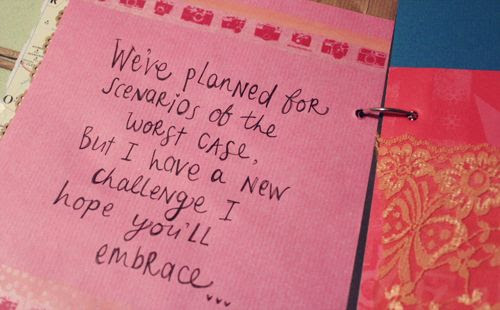 We've planned for
scenarios of the
worst case,
But I have a new
challenge I
hope you'll
embrace...